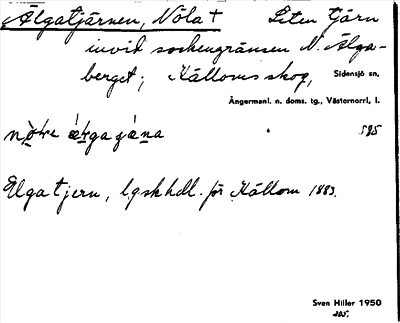 Älgatjärnen, Nola + Liten tjärn
invid sockengränsen N. Älga-
berget; Källoms skog, Sidensjö sn,
Ångermanl. n. doms. tg., Västernorrl. l.
585
Elgatjern, lgskhdl. för Källom 1883.
Sven Hiller 1950